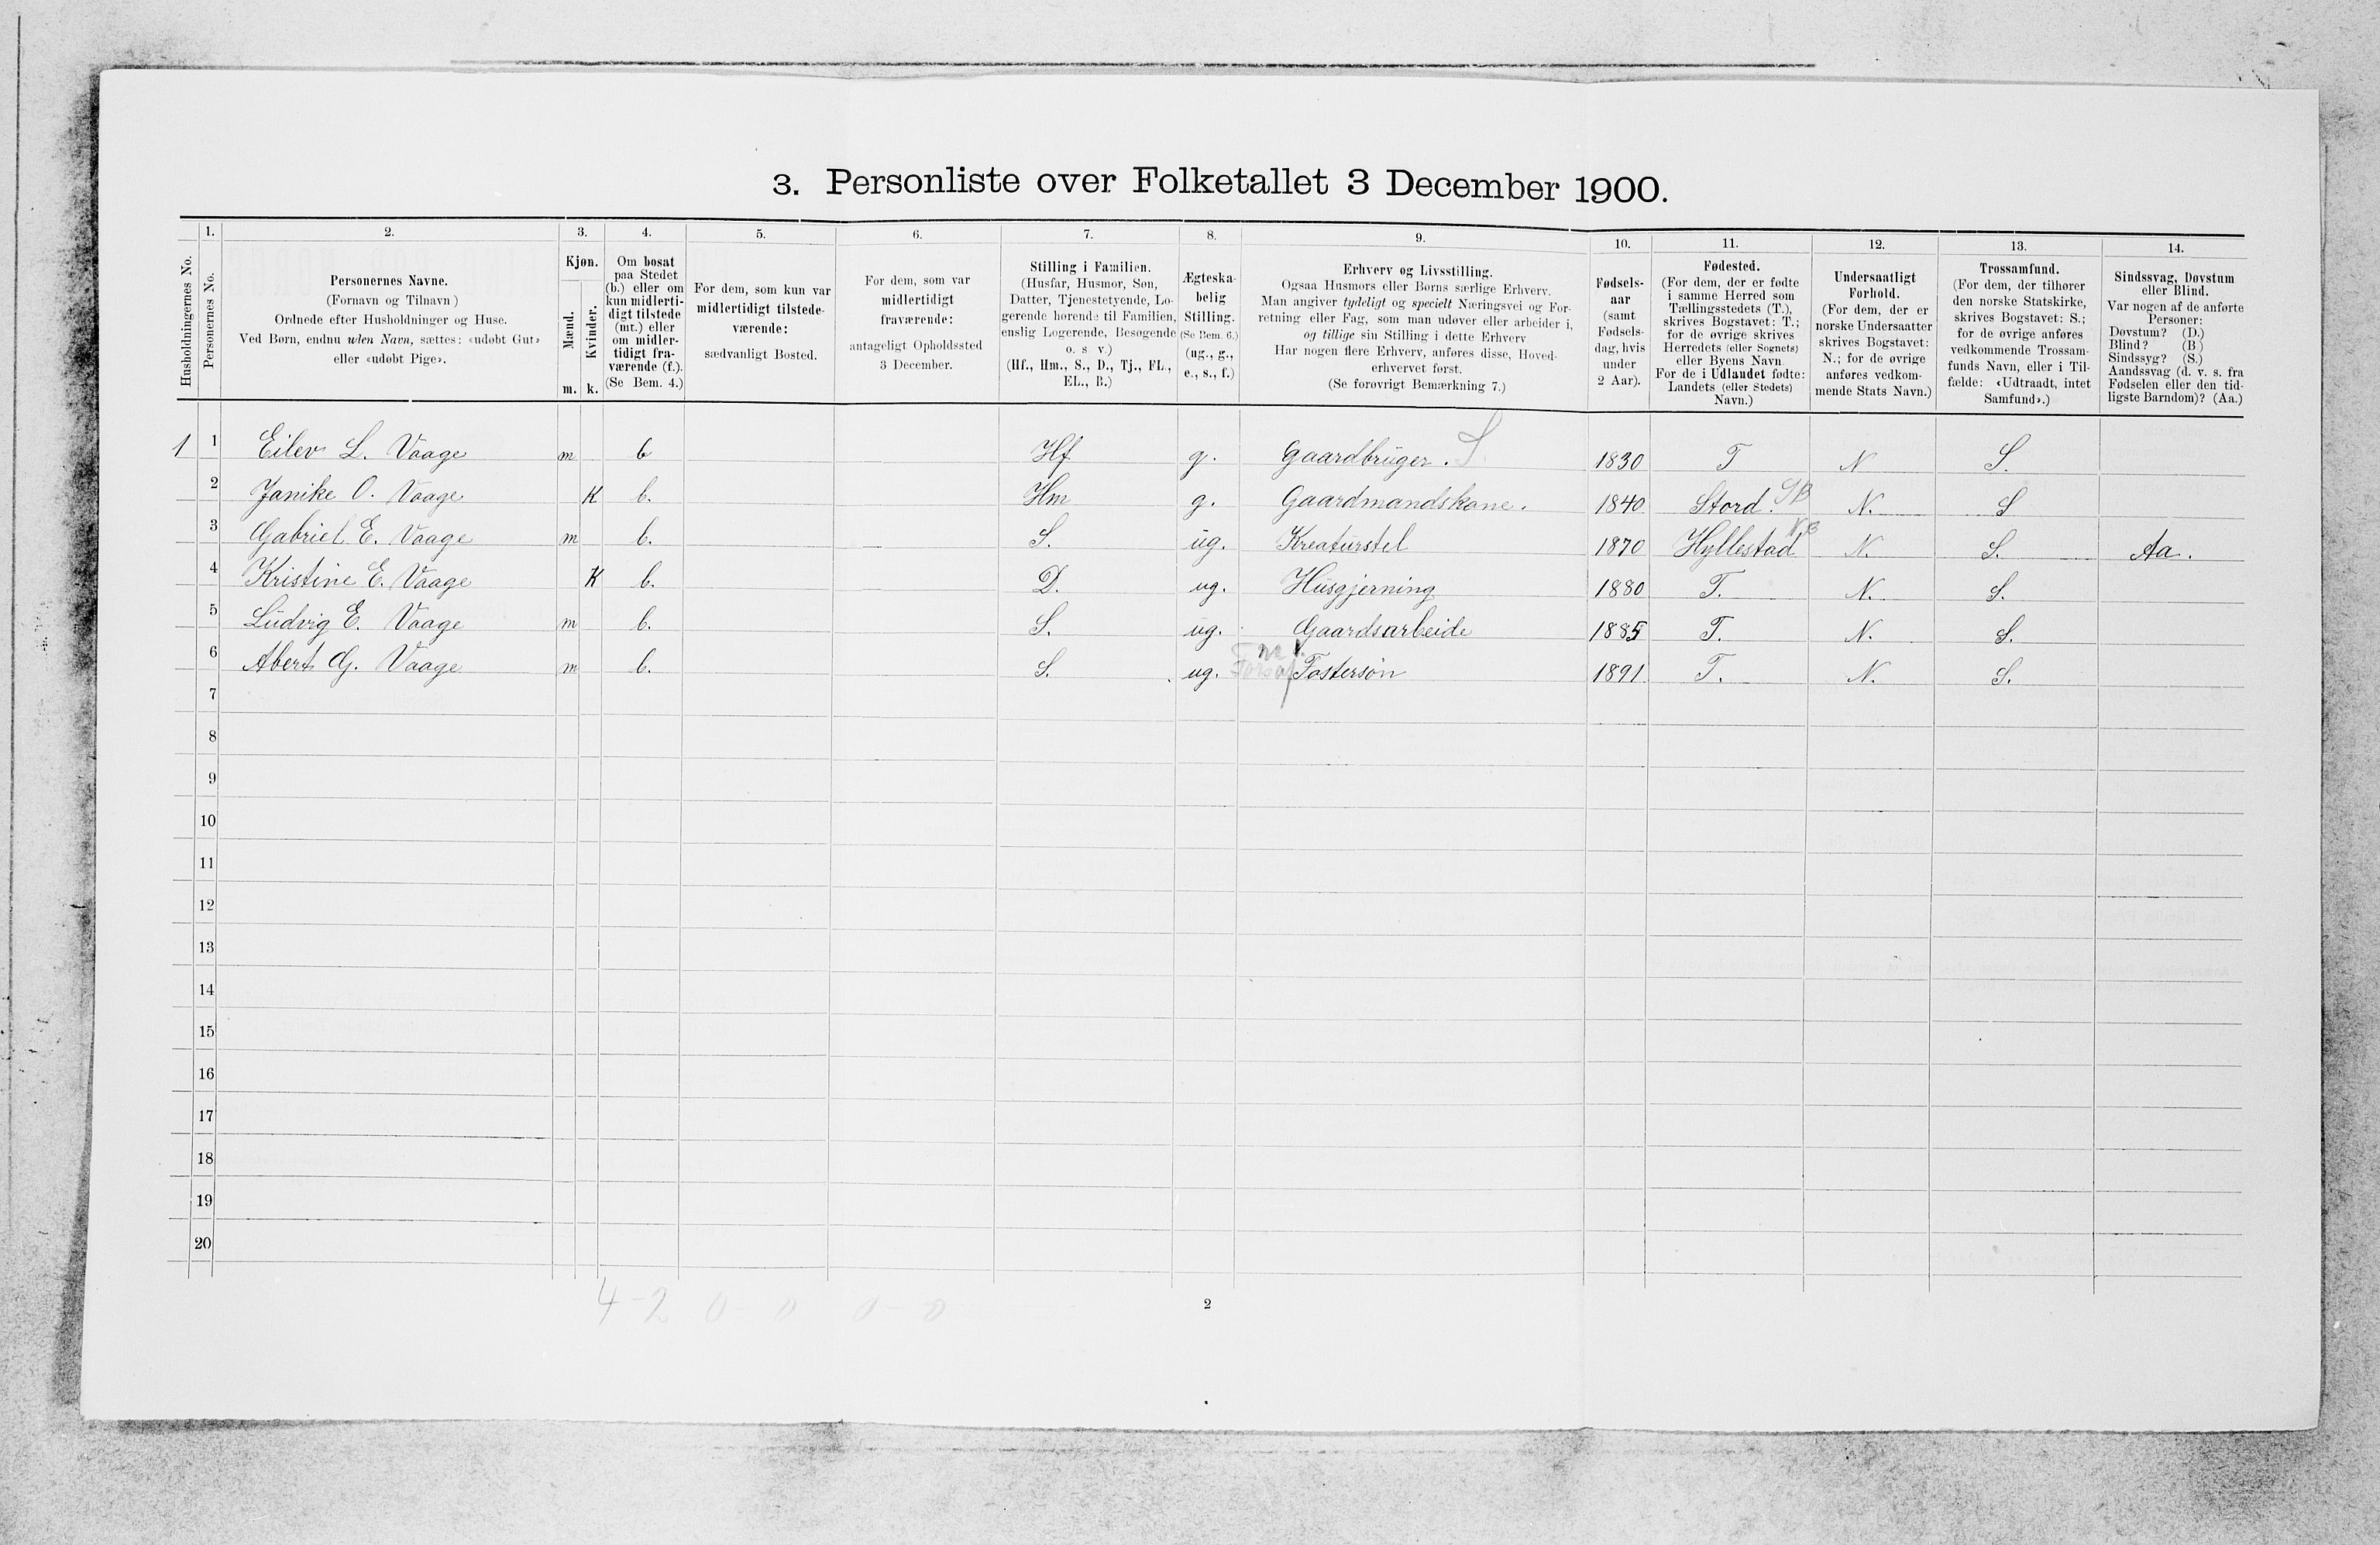 3. Personliste over Folketallet 3 December 1900.
Husholdningernes No.
1.
Personernes No.
2.
Personernes Navne.
(Fornavn og Tilnavn)
Ordnede efter Husholdninger og Huse.
Ved Børn, endnu uden Navn, sættes: «udøbt Gut»
eller «udøbt Pige».
3.
Kjøn.
Mænd.
Kvinder.
m. k.
4.
Om bosat
paa Stedet
(b.) eller om
kun midlerti-
digt tilstede
(mt.) eller
om midler-
tidigt fra-
værende (f.).
(Se Bem. 4.)
5.
For dem, som kun var
midlertidigt tilstede-
værende:
sædvanligt Bosted.
6.
For dem, som var
midlertidigt
fraværende:
antageligt Opholdssted
3 December.
7.
Stilling i Familien.
(Husfar, Husmor, Søn,
Datter, Tjenestetyende, Lo-
gerende hørende til Familien,
enslig Logerende, Besøgende
o. s v.)
(Hf., Hm., S., D., Tj., FL.,
EL., B.)
8.
Ægteska-
belig
Stilling.
(Se Bem. 6.)
(ug., g.,
e., s., f.)
9.
Erhverv og Livsstilling.
Ogsaa Husmors eller Børns særlige Erhverv.
Man angiver tydeligt og specielt Næringsvei og For-
retning eller Fag, som man udøver eller arbeider i,
og tillige sin Stilling i dette Erhverv
Har nogen flere Erhverv, anføres disse, Hoved-
erhvervet først.
(Se forøvrigt Bemærkning 7.)
10.
Fødsels-
aar
(samt
Fødsels-
dag, hvis
under
2 Aar).
11.
Fødested.
(For dem, der er fødte
i samme Herred som
Tællingsstedets (T.),
skrives Bogstavet: T.;
for de øvrige skrives
Herredets (eller Sognets)
eller Byens Navn
For de i Udlandet fødte:
Landets (eller Stedets)
Navn.)
12.
Undersaatligt
Forhold.
(For dem, der er
norske Undersaatter
skrives Bogstavet:
N.; for de øvrige
anføres vedkom-
mende Stats Navn.)
13.
Trossamfund.
(For dem, der tilhører
den norske Statskirke,
skrives Bogstavet: S.;
for de øvrige anføres
vedkommende Trossam-
funds Navn, eller i Til-
fælde: «Udtraadt, intet
Samfund».)
14.
Sindssvag, Døvstum
eller Blind.
Var nogen af de anførte
Personer:
Døvstum? (D.)
Blind? (B)
Sindssyg? (S.)
Aandssvag (d. v. s. fra
Fødselen eller den tid-
ligste Barndom)? (Aa.)
1 1 Eilev L. Vaage m b Hf g. Gaardbrüger. S 1830 T N S.
2 Janike O. Vaage K b. Hm g. Gaardmandskone. 1840 Stord. SB N. S
3 Gabriel E. Vaage m b. S. ug. Kreaturstel 1870 Hyllestad NB N. S. Aa.
4 Kristine E. Vaage K b. D. ug. Husgjerning 1880 T. N. S.
5 Ludvig E. Vaage m b. S. ug. Gaardsarbeide 1885 T. N. S.
6 Abert G. Vaage m b. S. ug. Fostersøn 1891 T. N. S.
7
8
9
10
11
12
13
14
15
16
17
18
19
20
4-2 0-0 0-0
2